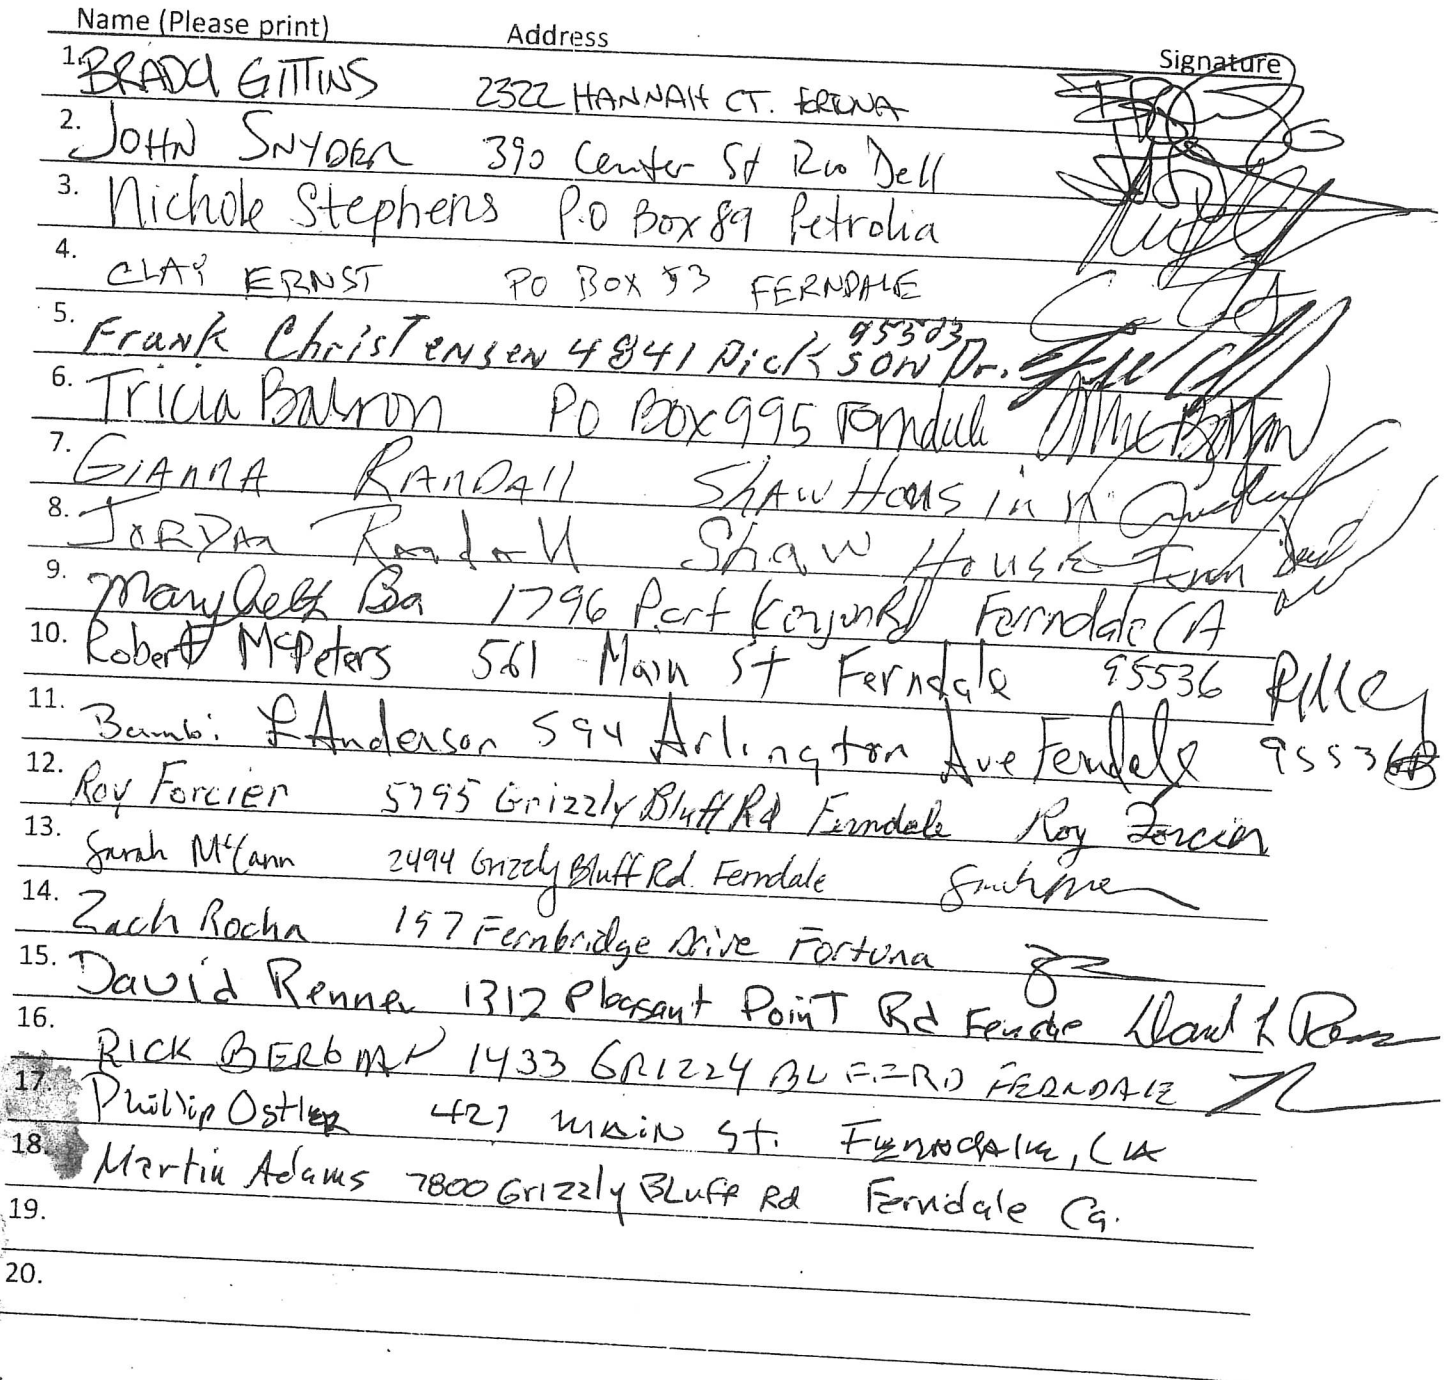 Name (Please print) Address Signature
1. BRADY GITTINS 2322 HANNAH CT. FORTUNA
2. JOHN SNYDER 390 Center St Rio Dell
3. Nichole Stephens P.O Box 89 Petrolia
4. CLAY ERNST PO BOX 53 FERNDALE
5. Frank Christensen 4841 Dickson Dr. 95503
6. Tricia PO Box 995 Ferndale
7. GIANNA RANDALL SHAW House inn
8. JORDAN Randall Shaw House Inn
9. Marybeth 1796 Port Kenyon Rd Ferndale CA
10. Robert McPeters 561 Main St Ferndale 95536
11. Bambi L Anderson 594 Arlington Ave Ferndale 95536
12. Roy Forcier 5795 Grizzly Bluff Rd Ferndale Roy Forcier
13. Sarah McCann 2494 Grizzly Bluff Rd. Ferndale
14. Zach Rocha 157 Fernbridge Drive Fortuna
15. David Renner 1312 Pleasant Point Rd David L
16. RICK BERGMAN 1433 GRIZZLY BLUFF RD FERNDALE
17. Phillip Ostler 427 main st. Ferndale, CA
18. Martin Adams 7800 Grizzly BLuff Rd Ferndale Ca.
19.
20.